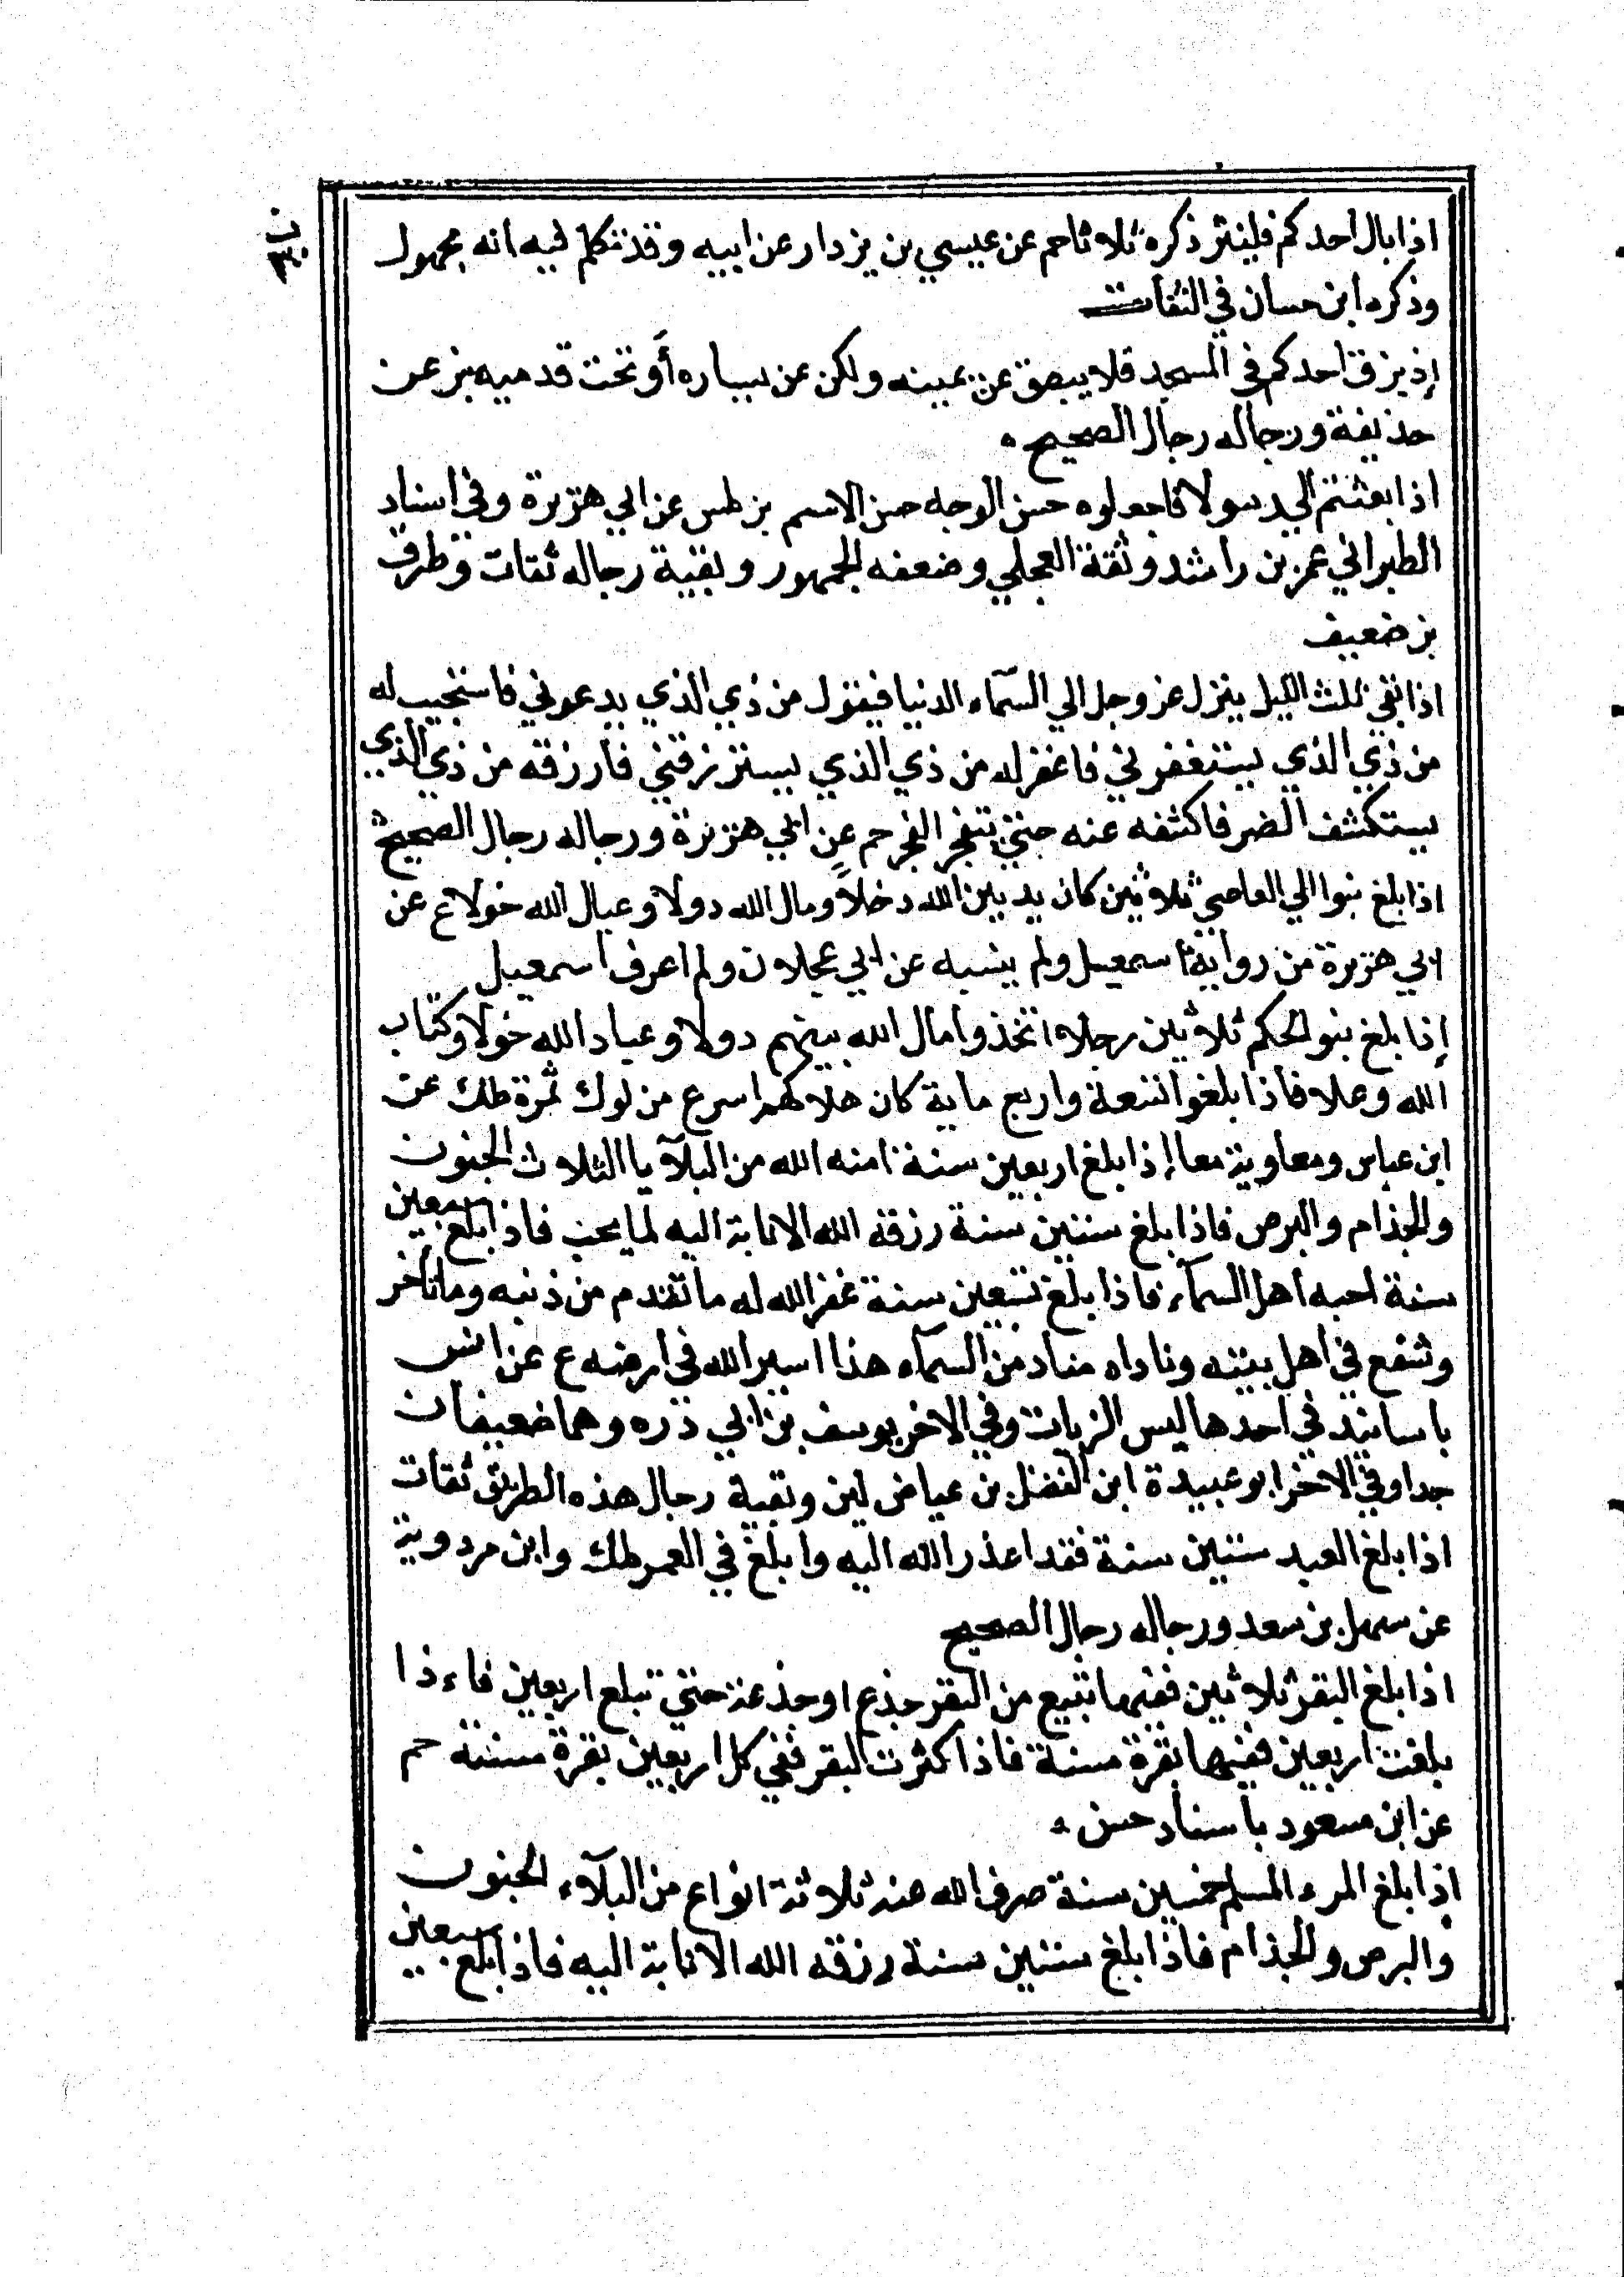 اذا بال احدكم فلينثر ذكره ثلاثا حم عن عيسي بن يزدار عن ابيه وقد تكلم فيه انه مجهول
وذكره ابن حسان في الثقات
إذ بزق احدكم في المسجد فلا يبصق عن يمينه ولكن عن يساره أو تحت قدميه بز عن
حذيفة ورجاله رجال الصحيح
اذا بعثتم الي رسولا فاجعلوه حسن الوجه حسن الاسم بز طس عن ابي هريرة وفي اسناد
الطبراني عمر بن راشد وثقة العجلي وضعفه الجمهور وبقية رجاله ثقات وطرف
بز ضعيف
اذا بقي ثلث الليل ينزل عز وجل الي السماء الدنيا فيقول من ذي الذي يدعوني فاستجيب له
من ذي الذي يستغفرني فاغفر له من ذي الذي يسترزقني فارزقه من ذي الذي
يستكشف الضر فاكشفه عنه حتي يتفجر الفجر حم عن ابي هريرة ورجاله رجال الصحيح
اذا بلغ بنوا ابي العاصي ثلاثين كان يد بين الله دخلاً ومال الله دولا وعيال الله خولا ع عن
ابي هريرة من رواية اسمعيل ولم ينسبه عن ابي عجلان ولم اعرف اسمعيل
إذا بلغ بنو الحكم ثلاثين رجلا اتخذوا مال الله بينهم دولا وعباد الله خولا وكتاب
الله وعلا فاذا بلغوا تسعة واربع ماية كان هلاكهم اسرع من لوك ثمرة طك عن
ابن عباس ومعاوية معا إذا بلغ اربعين سنة امنه الله من البلايا الثلاث الجنون
والجذام والبرص فاذا بلغ ستين سنة رزقه الله الانابة اليه لما يحب فاذا بلغ سبعين
سنة احبه اهل السماء فاذا بلغ تسعين سنة غفر الله له ما تقدم من ذنبه وما تأخر
وشفع في اهل بيته وناداه مناد من السماء هذا اسير الله في ارضه ع عن انس
باسانيد في احدها ليس الزيات وفي الاخر يوسف بن ابي ذره وهما ضعيفان
جدا وفي الاخر ابو عبيدة ابن الفضل بن عياض لين وبقية رجال هذه الطريق ثقات
اذا بلغ العبد ستين سنة فقد اعذر الله اليه وابلغ في العمر طك وابن مردوية
عن سهل بن سعد ورجاله رجال الصحيح
اذا بلغ البقر ثلاثين ففيها تبيع من البقر جذع او جذعة حتي تبلع اربعين فاءذا
بلغت اربعين ففيها بقرة مسنة فاذا كثرت البقر ففي كل اربعين بقرة مسنة حم
عن ابن مسعود باسناد حسن
اذا بلغ المرء المسلم خمسين سنة صرف الله عنه ثلاثة انواع من البلاء الجنون
والبرص والجذام فاذا بلغ ستين سنة رزقه الله الانابة اليه فاذا بلغ سبعين